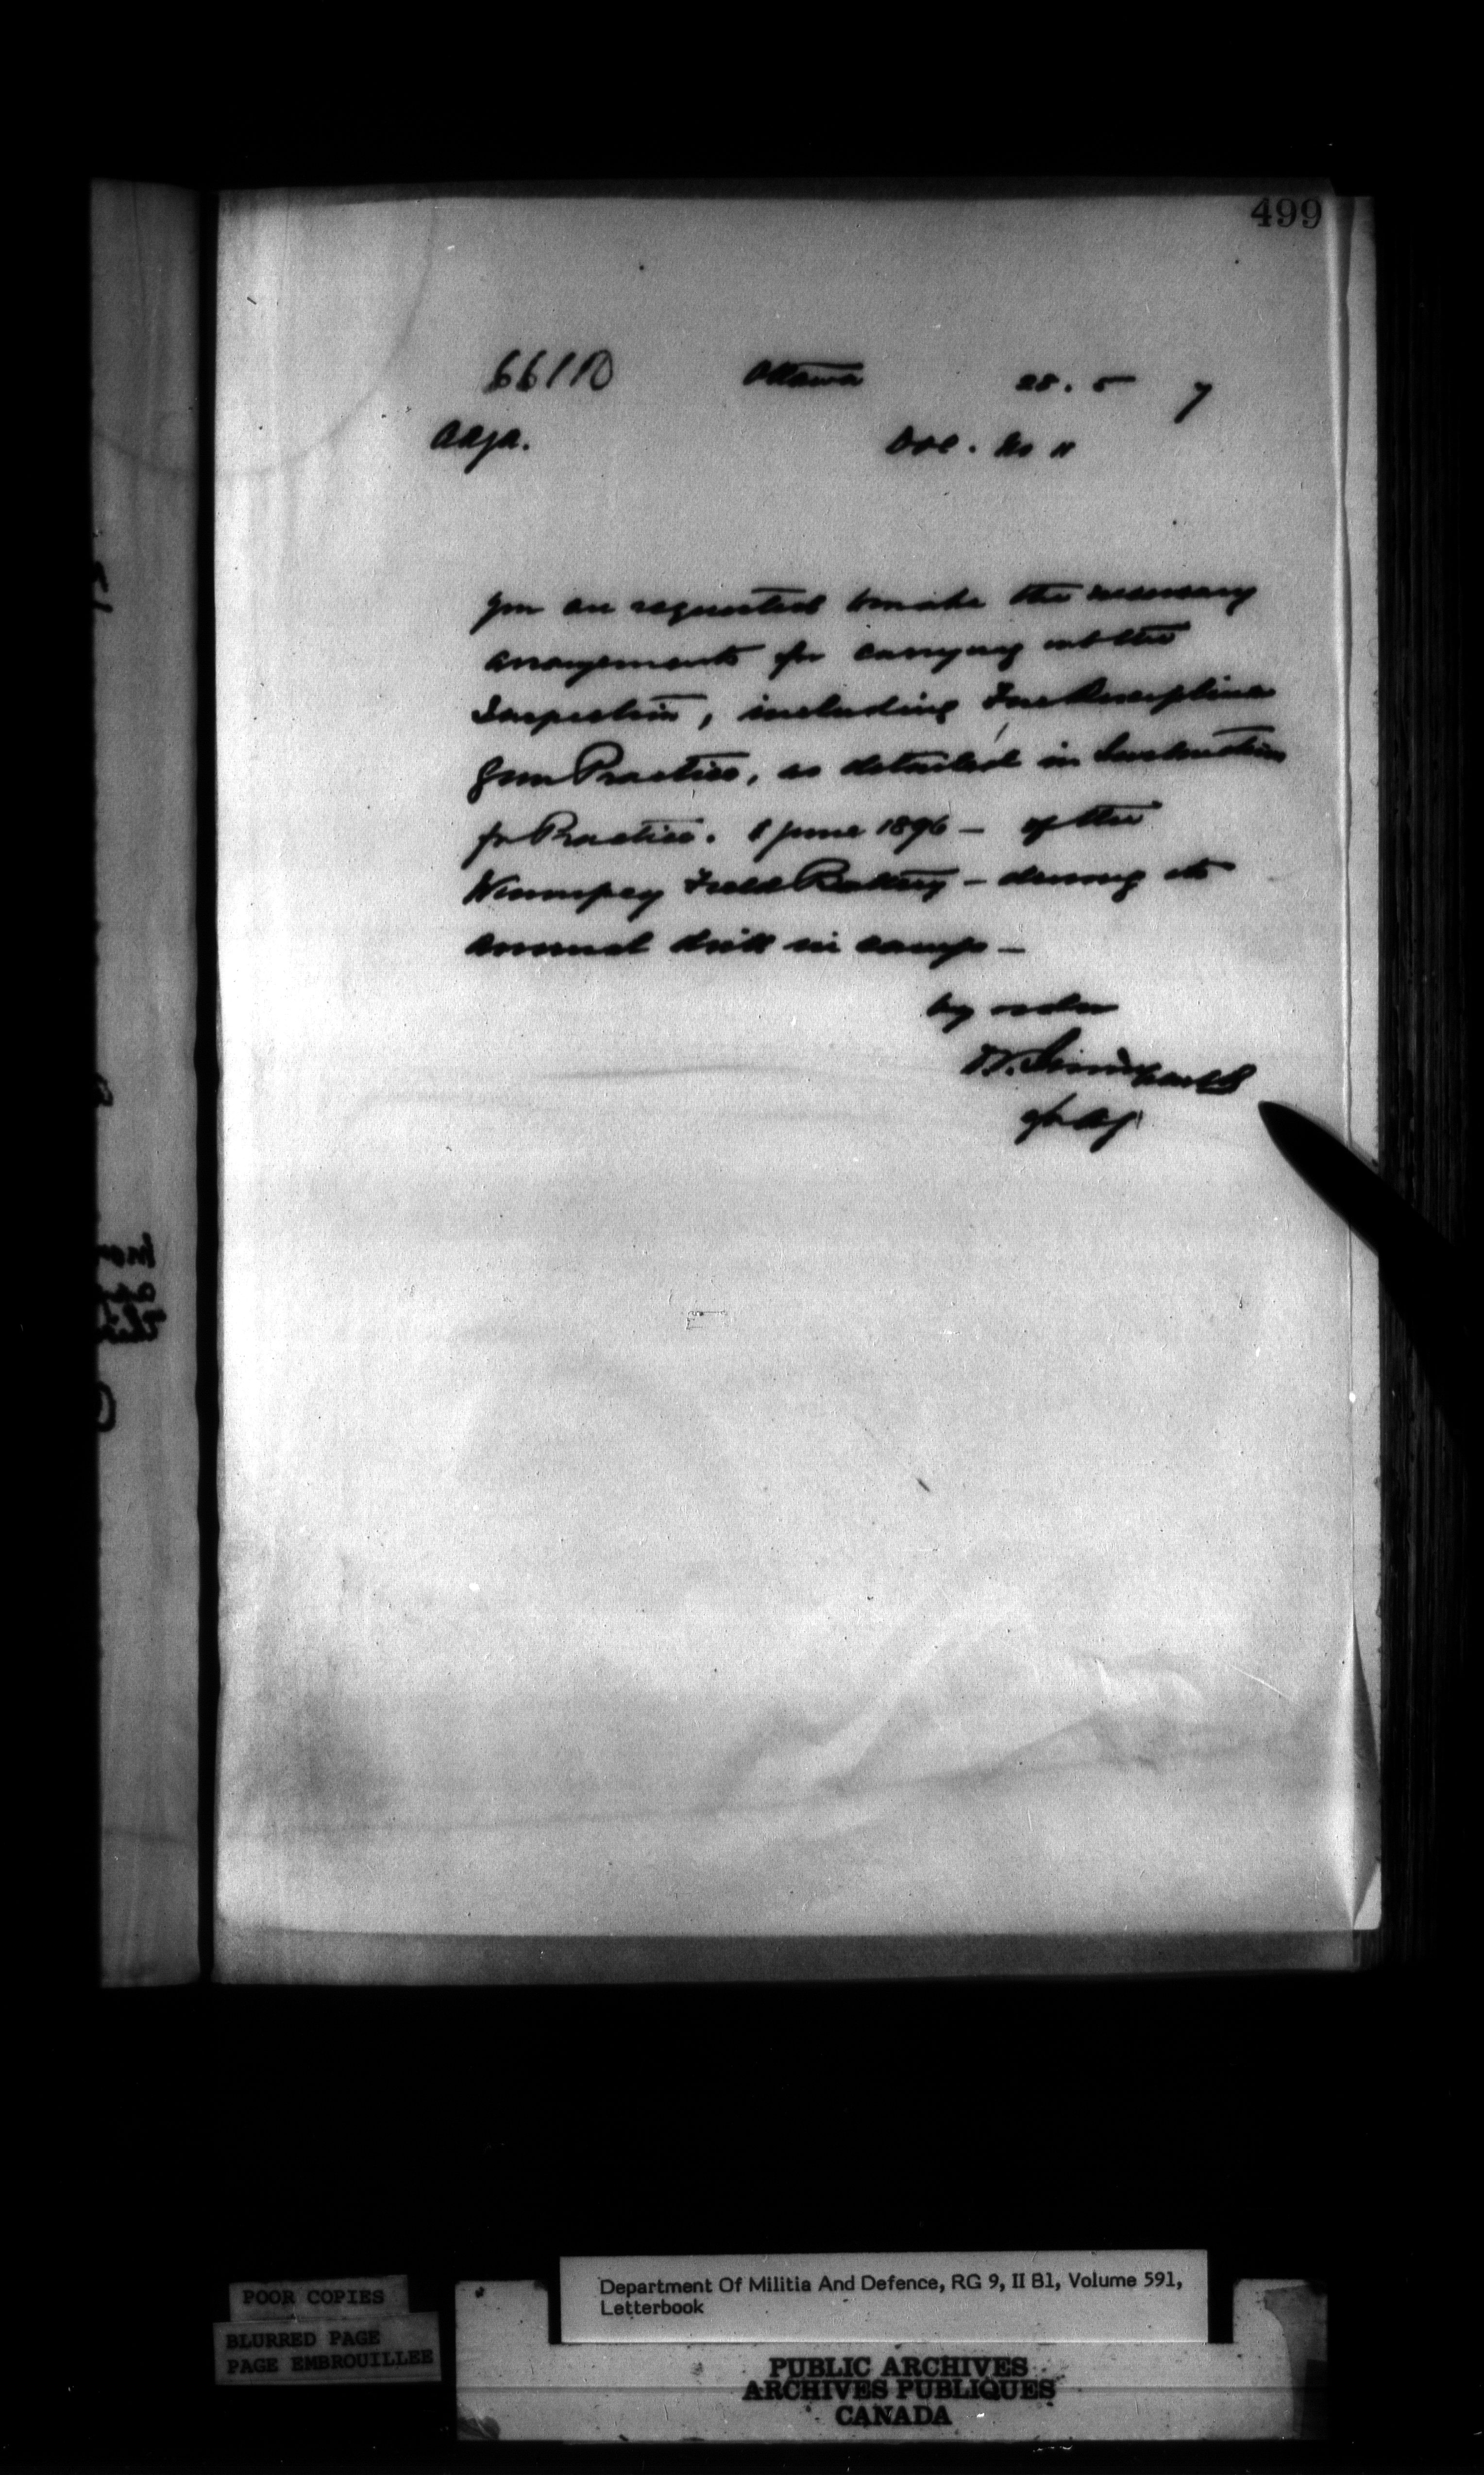 499
Ottawa 28. 5 7
DOC. No 11
You are requested to make the necessary
arrangements for carrying out the
Inspection, including Fire Discipline
Gun Practice, as detailed in Instructions
for Practice. 1 June 1896 – of the
Winnipeg Field Battery – during its
annual drill in camp –
by order
for AG
POOR COPIES
BLURRED PAGE
PAGE EMBROUILLEE
Department Of Militia And Defence, RG 9, II B1, Volume 591,
Letterbook
PUBLIC ARCHIVES
ARCHIVES PUBLIQUES
CANADA